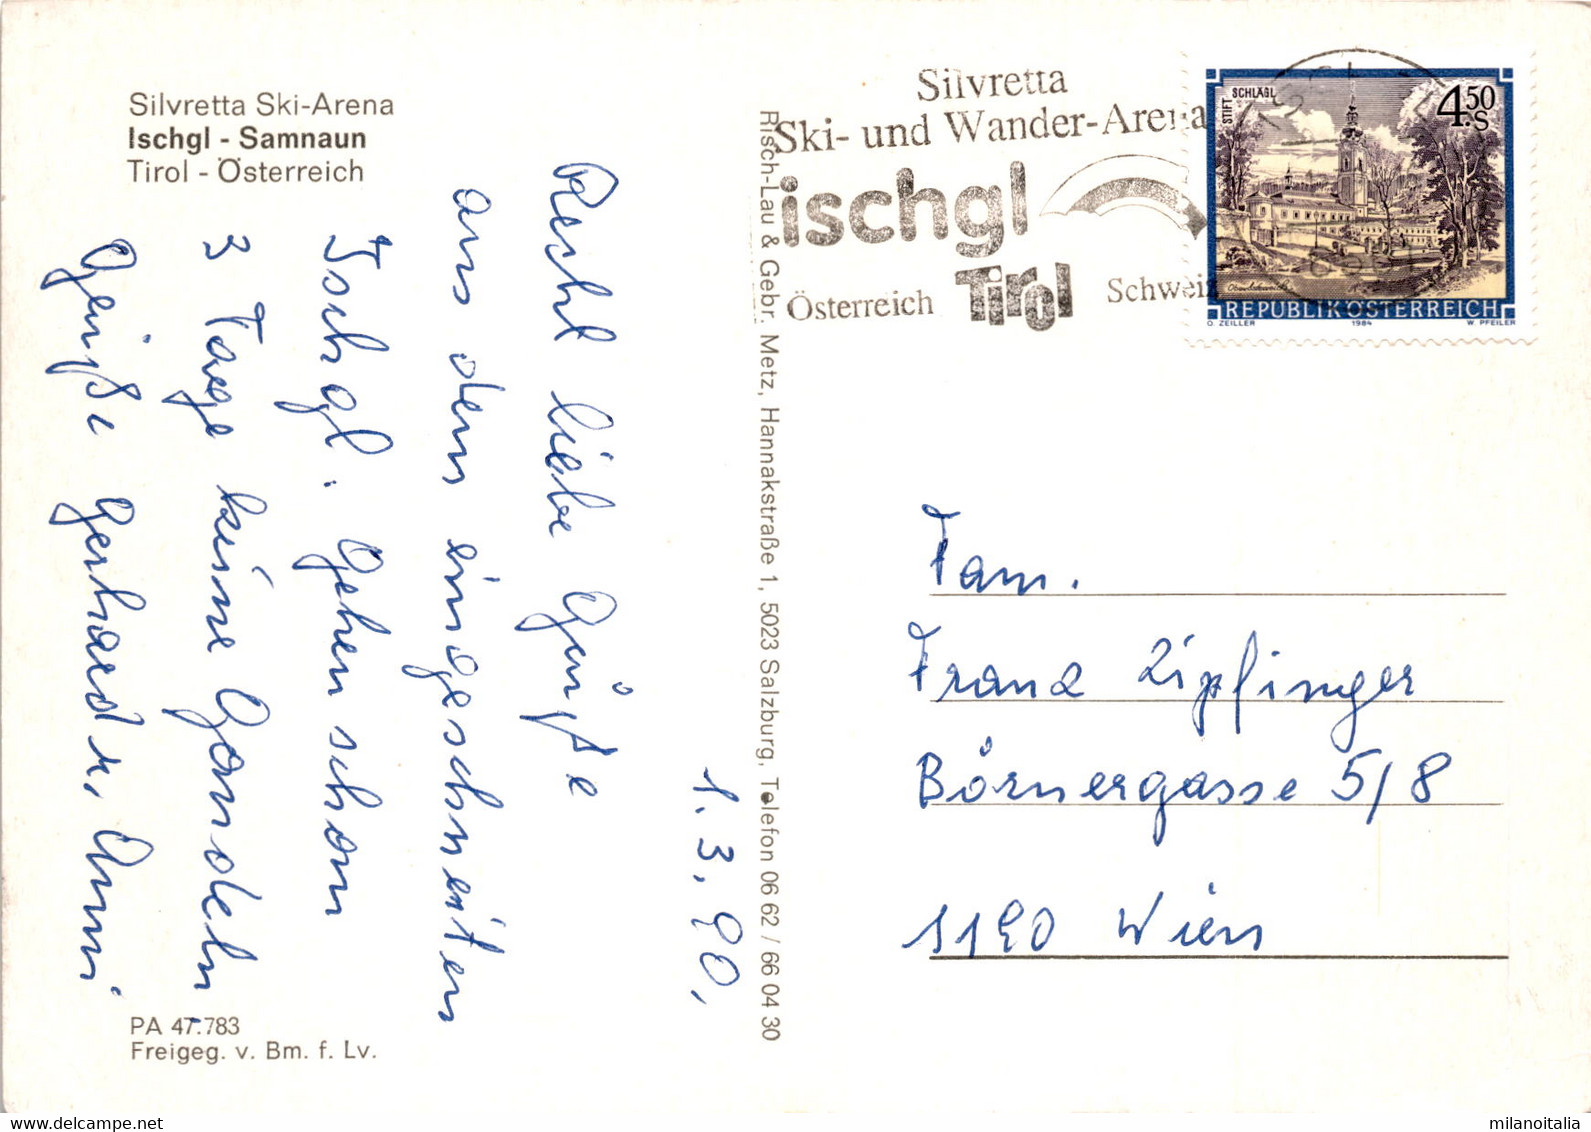 Silvretta Ski-Arena
Ischgl - Samnaun
Tirol - Österreich
1.3.90,
Recht liebe Grüße
aus dem eingeschneiten
Ischgl. Gehen schon
3 Tage keine Gondeln,
Grüße Gerhard u. Anni
PA 47.783
Freigeg. v. Bm. f. Lv.
Risch-Lau & Gebr. Metz, Hannakstraße 1, 5023 Salzburg, Telefon 06 62 / 66 04 30
Silvretta
Ski- und Wander-Arena
ischgl
Tirol
Österreich
Schweiz
STIFT SCHLÄGL
4.50 S
REPUBLIK ÖSTERREICH
O. ZEILLER 1984 W. PFEILER
Fam.
Franz Zipfinger
Börnergasse 5/8
1190 Wien
milanoitalia